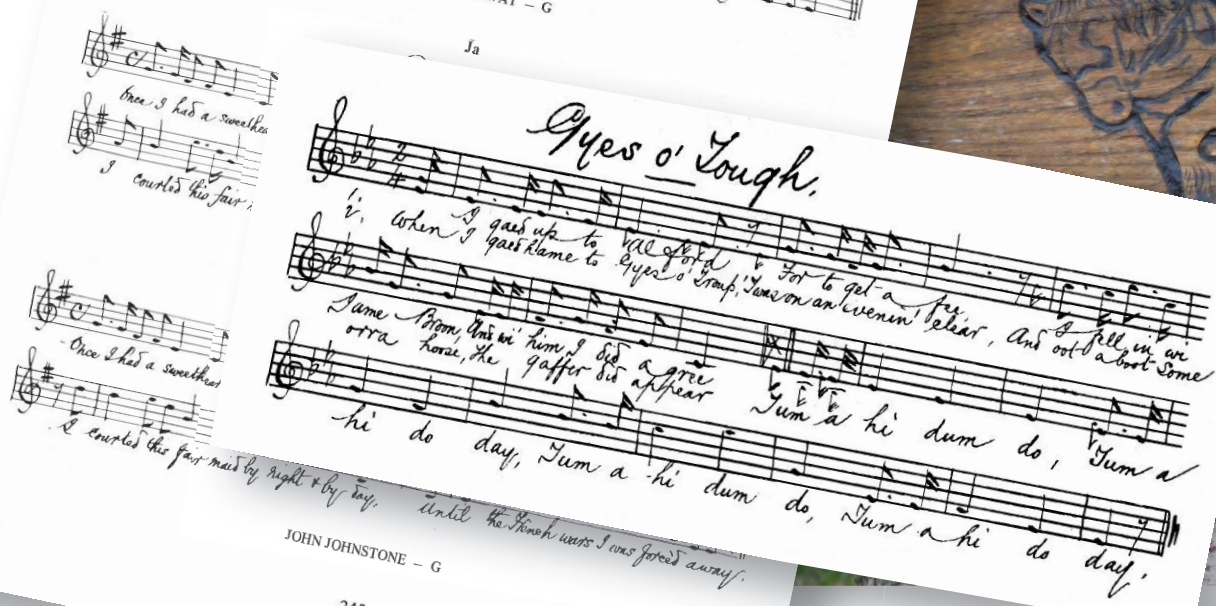 – G
Ja
Once I had a sweethea
I courted this fair
Once I had a sweetheart
I courted this fair maid by night & by day, Until the French wars I was forced away.
JOHN JOHNSTONE – G
Gyes o' Tough.
1. I gaed up to Alford For to get a fee, I fell in wi
2. When I gaed hame to Gyes o' Troup, 'Twas on an ivenin' clear, And oot aboot some
Jame Broon, And wi' him I did a gree
orra hoose, the gaffer did appear
Tum a hi dum do, Tum a
hi do day, Tum a hi dum do, Tum a hi do day.